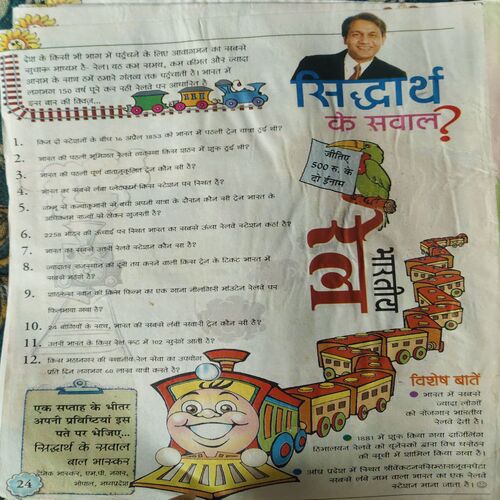 देश के किसी भी भाग में पहुंचने के लिए आवागमन का सबसे
सुचारू माध्यम है- रेल। यह कम समय, कम कीमत और ज्यादा
आराम के साथ हमें हमारे गंतव्य तक पहुंचाती है। भारत में
लगभग 150 वर्ष पूरे कर रही रेलवे पर आधारित है
इस बार की क्विज...
सिद्धार्थ
के सवाल?
जीतिए
500 रु. के
दो ईनाम
भारतीय
रेल
1. किन दो स्टेशनों के बीच 16 अप्रैल 1853 को भारत में पहली ट्रेन यात्रा हुई थी?
2. भारत की पहली भूमिगत रेलवे व्यवस्था किस शहर में शुरू हुई थी?
3. भारत की पहली पूर्ण वातानुकूलित ट्रेन कौन सी है?
4. भारत का सबसे लंबा प्लेटफार्म किस स्टेशन पर स्थित है?
5. जम्मू से कन्याकुमारी से बची अपनी यात्रा के दौरान कौन सी ट्रेन भारत के
अधिकतम राज्यों से होकर गुजरती है?
6. 2258 मीटर की ऊंचाई पर स्थित भारत का सबसे ऊंचा रेलवे स्टेशन कहां है?
7. भारत का सबसे उत्तरी रेलवे स्टेशन कौन सा है?
8. ज्यादातर राजस्थान की दूरी तय करने वाली किस ट्रेन के टिकट भारत में
सबसे महंगे हैं?
9. शाहरुख खान की किस फिल्म का एक गाना नीलगिरी माउंटेन रेलवे पर
फिल्माया गया है?
10. 24 बोगियों के साथ, भारत की सबसे लंबी सवारी ट्रेन कौन सी है?
11. उत्तरी भारत के किस रेल रूट में 102 सुरंगें आती हैं?
12. किस महानगर की स्थानीय रेल सेवा का उपयोग
प्रति दिन लगभग 60 लाख यात्री करते हैं?
एक सप्ताह के भीतर
अपनी प्रविष्टियां इस
पते पर भेजिए...
सिद्धार्थ के सवाल
बाल भास्कर
दैनिक भास्कर, एम.पी. नगर,
भोपाल, मध्यप्रदेश
24
विशेष बातें
भारत में सबसे
ज्यादा लोगों
को रोजगार भारतीय
रेलवे देती है।
1881 में शुरू किया गया दार्जिलिंग
हिमालयन रेलवे को यूनेस्को द्वारा विश्व धरोहर
की सूची में शामिल किया गया है।
आंध्र प्रदेश में स्थित
सबसे लंबे नाम वाला भारत का एक रेलवे
स्टेशन माना जाता है।